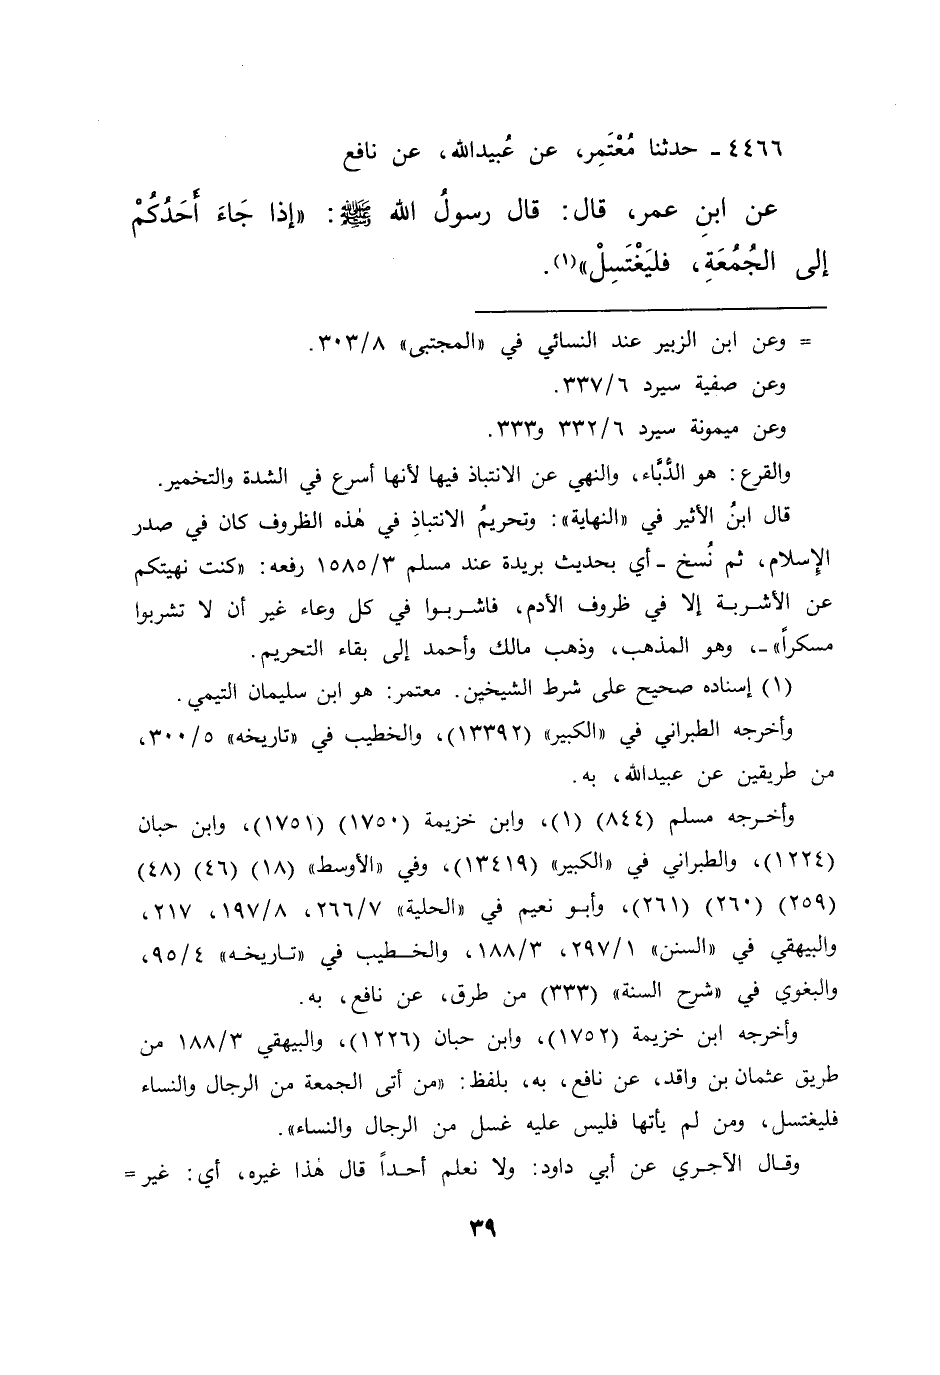 ٤٤٦٦ ـ حدثنا مُعْتَمِر، عن عُبيدالله، عن نافع
عن ابنِ عمر، قال: قال رسولُ الله ﷺ: «إذا جَاءَ أَحَدُكُمْ
إلى الجُمُعَةِ، فليَغْتَسِلْ»(١).
= وعن ابن الزبير عند النسائي في «المجتبى» ٣٠٣/٨.
وعن صفية سيرد ٣٣٧/٦.
وعن ميمونة سيرد ٣٣٢/٦ و٣٣٣.
والقرع: هو الدُّبَّاء، والنهي عن الانتباذ فيها لأنها أسرع في الشدة والتخمير.
قال ابنُ الأثير في «النهاية»: وتحريمُ الانتباذِ في هٰذه الظروف كان في صدر
الإِسلام، ثم نُسخ ـ أي بحديث بريدة عند مسلم ١٥٨٥/٣ رفعه: «كنت نهيتكم
عن الأشربة إلا في ظروف الأدم، فاشربوا في كل وعاء غير أن لا تشربوا
مسكراً» ـ، وهو المذهب، وذهب مالك وأحمد إلى بقاء التحريم.
(١) إسناده صحيح على شرط الشيخين. معتمر: هو ابن سليمان التيمي.
وأخرجه الطبراني في «الكبير» (١٣٣٩٢)، والخطيب في «تاريخه» ٣٠٠/٥،
من طريقين عن عبيدالله، به.
وأخرجه مسلم (٨٤٤) (١)، وابن خزيمة (١٧٥٠) (١٧٥١)، وابن حبان
(١٢٢٤)، والطبراني في «الكبير» (١٣٤١٩)، وفي «الأوسط» (١٨) (٤٦) (٤٨)
(٢٥٩) (٢٦٠) (٢٦١)، وأبو نعيم في «الحلية» ٢٦٦/٧، ١٩٧/٨، ٢١٧،
والبيهقي في «السنن» ٢٩٧/١، ١٨٨/٣، والخطيب في «تاريخه» ٩٥/٤،
والبغوي في «شرح السنة» (٣٣٣) من طرق، عن نافع، به.
وأخرجه ابن خزيمة (١٧٥٢)، وابن حبان (١٢٢٦)، والبيهقي ١٨٨/٣ من
طريق عثمان بن واقد، عن نافع، به، بلفظ: «من أتى الجمعة من الرجال والنساء
فليغتسل، ومن لم يأتها فليس عليه غسل من الرجال والنساء».
وقال الآجري عن أبي داود: ولا نعلم أحداً قال هٰذا غيره، أي: غير =
٣٩